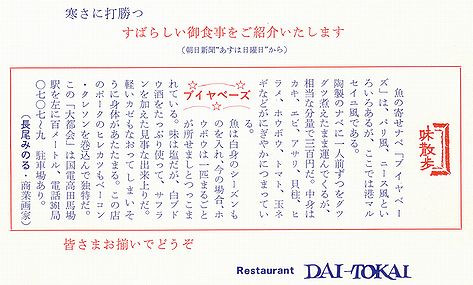 寒さに打勝つ
すばらしい御食事をご紹介いたします
（朝日新聞"あすは日曜日"から）
味散歩
魚の寄せナベ『ブイヤベー
ズ』は、パリ風、ニース風とい
ろいろあるが、ここでは港マル
セイユ風である。
陶製のナベに一人前ずつをグツ
グツ煮えたまま運んでくるが、
相当な分量で三百円だ。中身は
カキ、エビ、アサリ、貝柱、ヒ
ラメ、ホウボウ、トマト、玉ネ
ギなどがにぎやかにつまってい
る。
ブイヤベーズ
魚は白身のシーズンも
のを入れ、今の場合、ホ
ウボウは一匹まるごと
が所せましとつっこま
れている。味は塩だが、白ブド
ウ酒をたっぷり使って、サフラ
ンを加えた見事な出来上りだ。
軽いカゼもなおってしまいそ
うに身体があたたまる。この店
のポークのヒレカツもベーコン
・クレソンを巻込んで独特だ。
この『大都会』は国電高田馬場
駅を左に百メートル、電話368局
〇七〇七~九　駐車場あり。
（長尾みのる・商業画家）
皆さまお揃いでどうぞ
Restaurant DAI-TOKAI